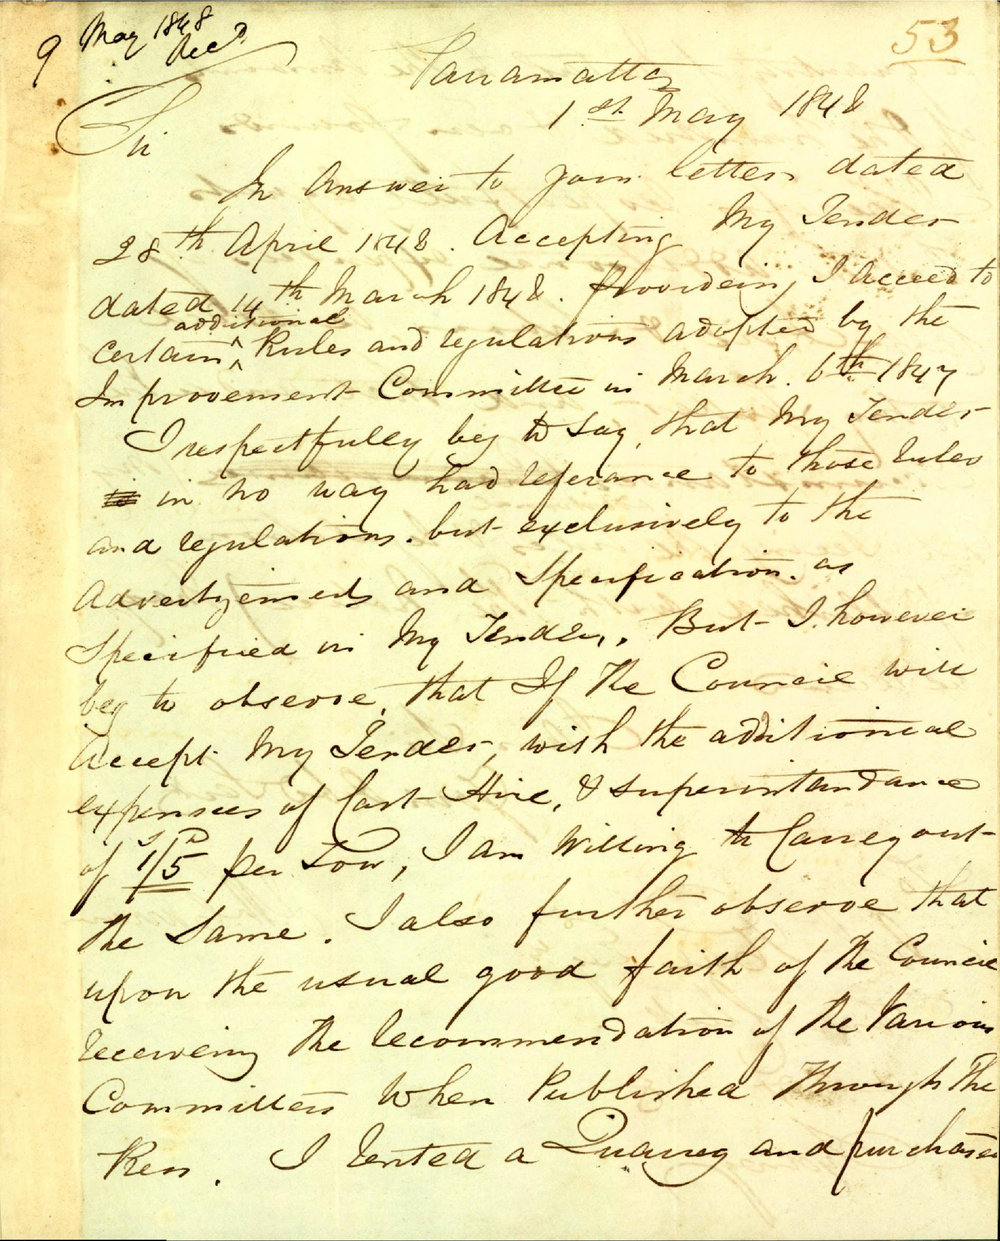 9 May 1848
Recd
53
Parramatta
1st May 1848
Sir
In Answer to your letter dated
28th April 1848. Accepting My Tender
dated 14th March 1848. Provideing I acceed to
additional
certain ^ Rules and regulations adopted by the
Improvement Committee in March. 6th 1847
I respectfully beg to say, that My Tender
in no way had referance to those rules
and regulations. but exclusively to the
Advertizements and Specification. as
Specified in My Tender,. But I however
beg to observe, that If the Council will
Accept My Tender, with the additional
expenses of Cart Hire, & superintandance
of 1/5 per Tow, I am Willing to Carrey out
the Same. I also further observe that
upon the usual good faith of the Council
receiveing the recommendation of the Various
Committees When Published Through The
Res. I rented a Quarrey and purchased